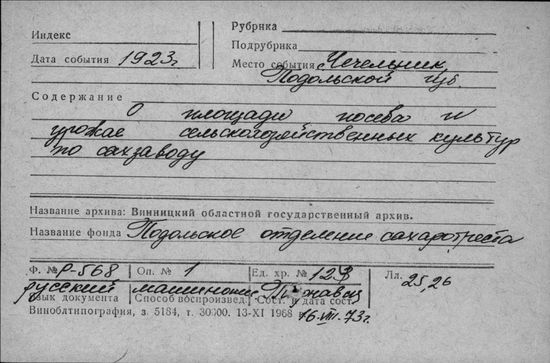 Индекс
Рубрика
Подрубрика
Дата события 1923 г.
Место события Чечельник
Подольской губ.
Содержание
О площади посева и
урожае сельскохозяйственных культур
по сахзаводу
Название архива: Винницкий областной государственный архив.
Название фонда Подольское отделение сахаротреста
Ф. № Р-568 Оп. № 1 Ед. хр. № 123 Лл. 25,26
русский машинопись
Язык документа Способ воспроизвед. Сост. и дата сост.
Виноблтипография, з. 5184, т. 30000. 13-XI 1968 16.VIII.73г.